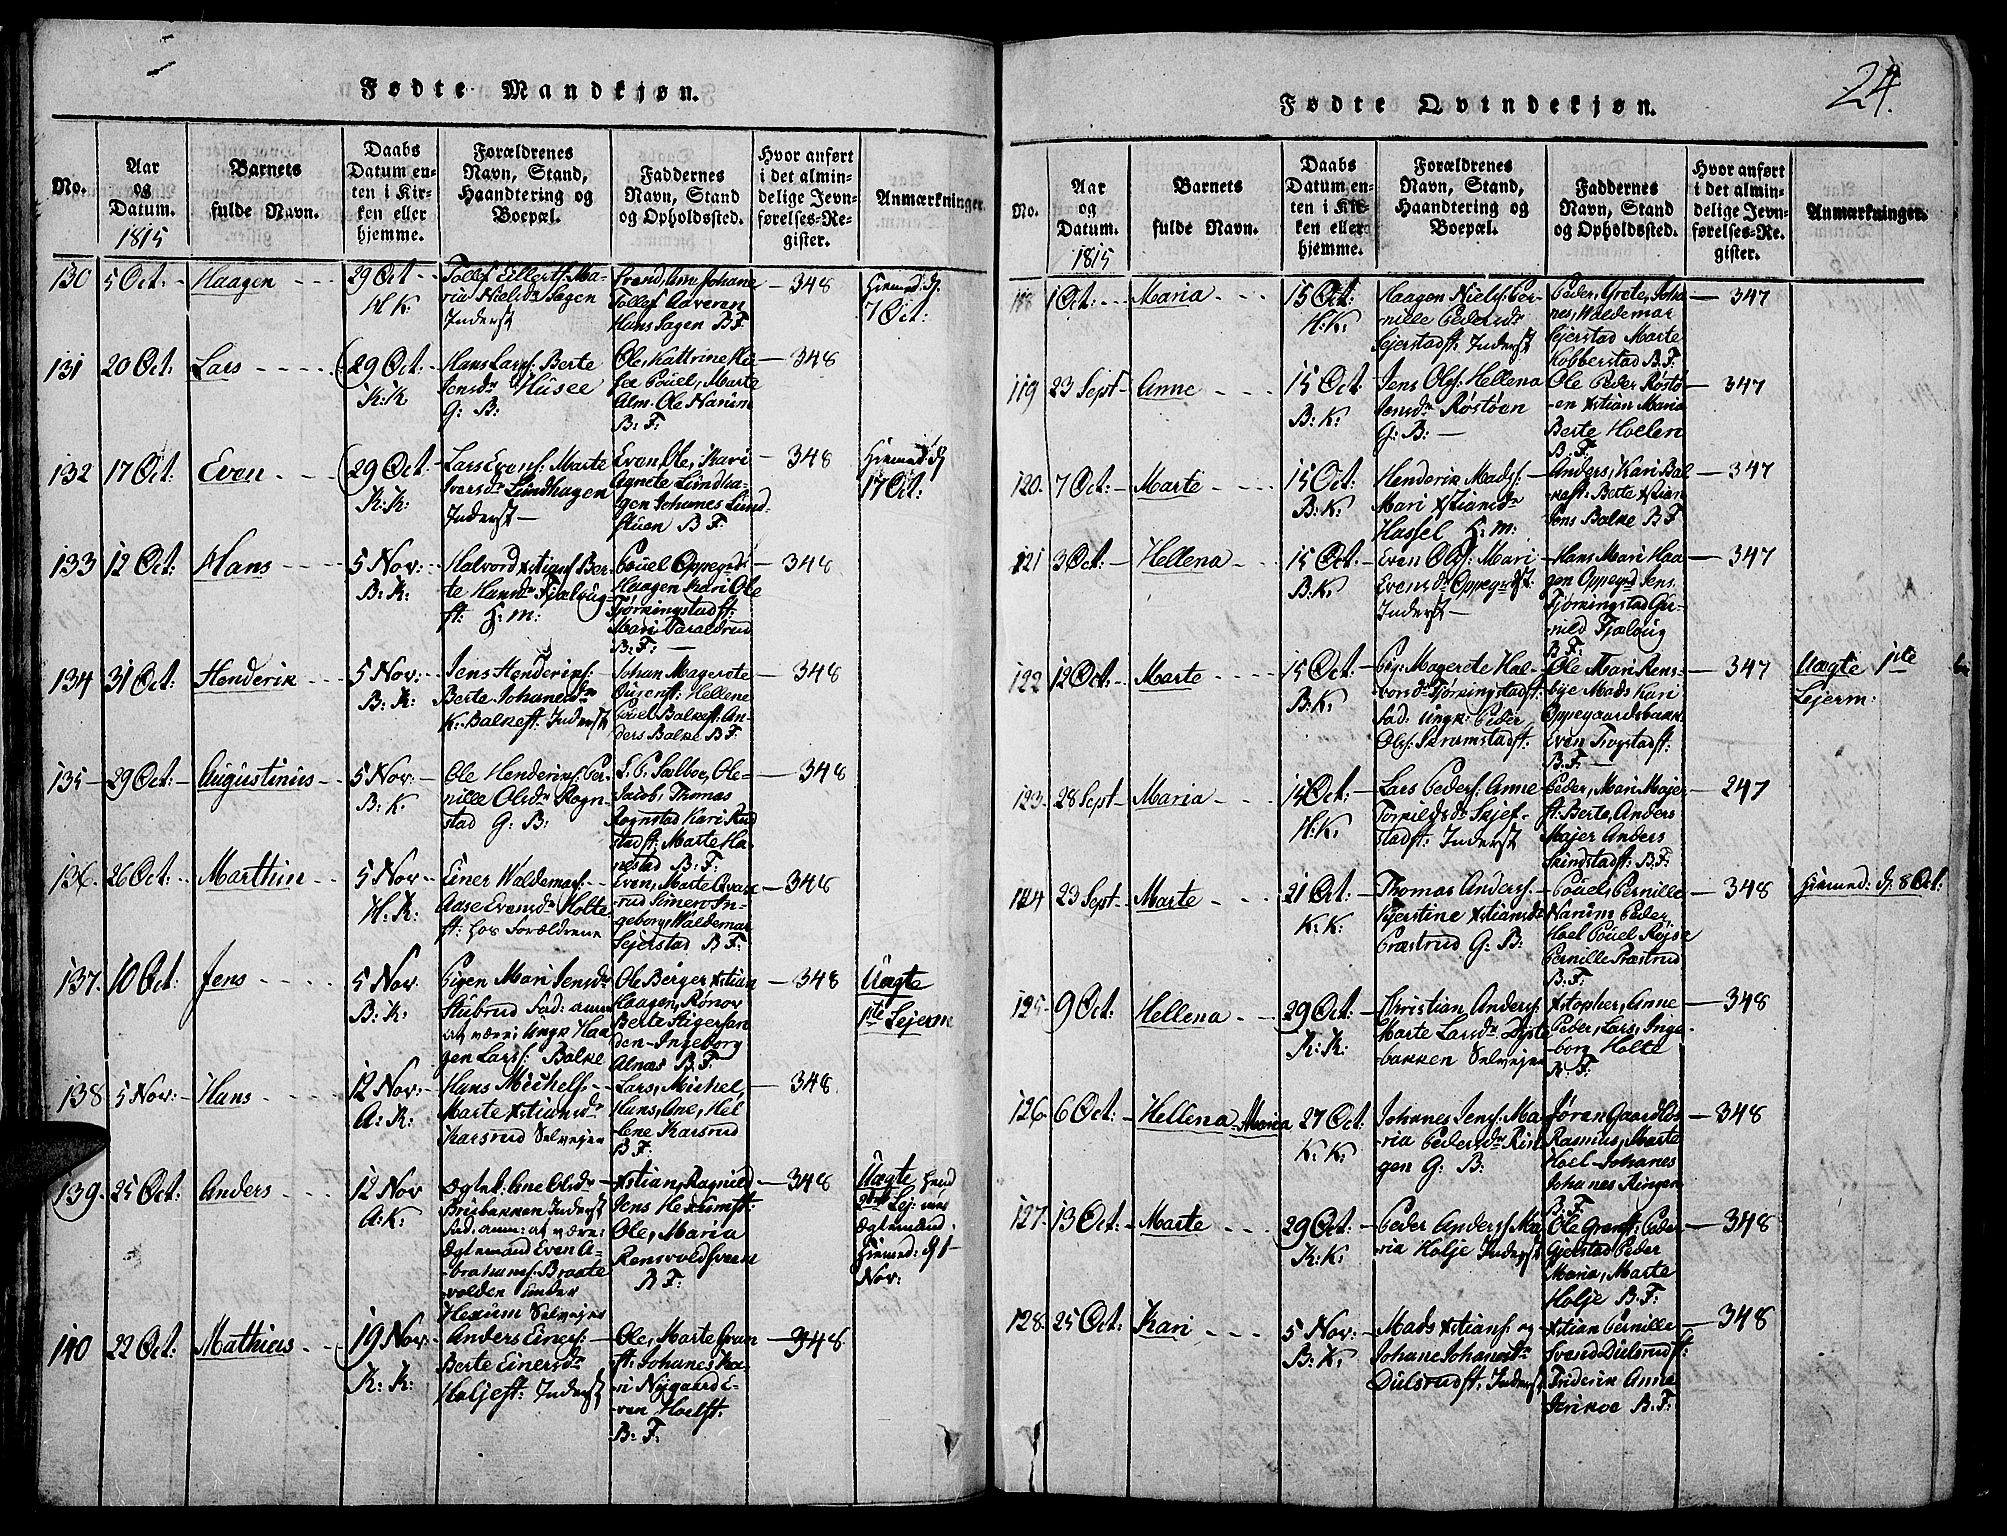 Fødte Mandkjøn.
No.
Aar
og
Datum.
1815
Barnets
fulde Navn.
Daabs
Datum en-
ten i Kir-
ken eller
hjemme.
Forældrenes
Navn, Stand,
Haandtering og
Boepæl.
Faddernes
Navn, Stand
og Opholdssted.
Hvor anført
i det almin-
delige Jevn-
førelses-Re-
gister.
Anmærkninger.
130 5 Oct: Haagen
29 Oct
H K:
Tollef Eillertss: Ma-
ria Nielsdr Sagen
Inderst
Johane
Tollef Aaveren
Hans Sagen B F:
348
Hiemed: d
7 Oct:
131 20 Oct: Lars
29 Oct:
K: K
Hans Larss: Berte
Jensdr Husee
G: B:
Ole, Kattrine Hu-
see Pouel, Marte
Alm Ole Narum
B: F:
348
132 17 Oct: Even
29 Oct:
K: K:
Lars Evens: Marte
Iversdr Lundhagen
Inderst
Even, Ole, Kari
Agnete Lundha-
gen Johannes Lund-
stuen B F:
348
Hiemed: d
17 Oct:
133 12 Oct: Hans
5 Nov:
B: K:
Halvord Xstians: Ber-
te Hansdr Fjæloug-
st: H: m:
Pouel Oppegrd:
Haagen Kari Ole
Tjørningstadst:
Mari Taraldrud
B: F:
348
134 31 Oct: Henderik
5 Nov:
B: K:
Jens Henderiks:
Berte Johanesdr
K: Balkest: Inderst
Johan Magerete
Hellene
Pouel Balkest: An-
ders Balke B F:
348
135 29 Oct: Augustinus
5 Nov:
B: K
Ole Henderiks: Per-
nille Olsdr Rogn-
stad G: B:
Ole
Jacob, Thomas
Rognstad Kari Rud
stadst: Marte Ha-
nestad B: F:
348
136. 26 Oct: Marthin
5 Nov
H: K:
Einer Waldemars:
Aase Evensdr Holte
st: hos Forældrene
Even, Marte Qvær-
rud Simen In-
geborg, Waldemar
Sejerstad B F:
348
137. 10 Oct: Jens
5 Nov
B: K:
Pigen Mari Jensdr
Stubrud Fad: anm
at være: Ungk: Haa-
gen Larss: Balke
Ole Berger Xstian
Haagen, Rønnov
Berte Stigersan
den Ingeborg
Alnæs B F:
348
Uægte
1ste Lejerm
138 5 Nov: Hans
12 Nov:
A: K:
Hans Michels:
Marte Xstiansdr
Karsrud Selvejer
Lars, Michel,
Hans, Ane, Hel
lene Karsrud
B F:
348
139. 25 Oct: Anders
12 Nov
A: K:
Ane Olsdr
Bribakken Inderst
Fad: anm: at være
Ægtemand Even A-
brahams: Braate
volden under
Hexum Selvejer
Xstian, Ragnild
Jens Hexumst:
Ole, Maria
B F:
348
Uægte hend
2den Lej: med
Ægtemand
Hiemed: d 1
Nov:
140 22 Oct: Mathias
19 Nov:
K: K:
Anders Einers:
Berte Einersdr
Holjest: Inderst
Ole, Marte Gran
st: Johanes Ka-
ri Nygaard E-
ven Hoelst:
B: F:
348
24.
Fødte Qvindekjøn.
No.
Aar
og
Datum.
1815
Barnets
fulde Navn.
Daabs
Datum en-
ten i Kir-
ken eller
hjemme.
Forældrenes
Navn, Stand,
Haandtering og
Boepæl.
Faddernes
Navn, Stand
og Opholdssted.
Hvor anført
i det almin-
delige Jevn-
førelses-Re-
gister.
Anmærkninger.
118 1 Oct: Maria
15 Oct:
H: K:
Haagen Niels: Per-
nille Pedersdr
Sejerstadst: Inderst
Peder, Grete, Joha
nes, Waldemar
Sejerstad Marte
Kobberstad B F:
347
119 23 Sept Anne
15 Oct
B: K:
Jens Ols: Hellena
Jensdr Røstøen
G: B:
Ole Peder Røstø-
en Xstian Maria
Berte Hoelen
B: F:
347
120. 7 Oct: Marte
15 Oct
B: K:
Henderik Mads:
Mari Xstiansdr
Hassel H: m:
Anders, Kari Bal
kest: Berte Xstian
Jens Balke B F
347
121 3 Oct: Hellena
15 Oct
B: K:
Even Ols: Mari
Evensdr Oppegrdst:
Inderst
Hans Mari Haa
gen Oppegrd Jens
Tjørningstad Gu-
nild Fjæloug
B F:
347
122 12 Oct: Marte
15 Oct:
B: K:
Pig: Magerete Hal-
vorsdr Tjørningstadst:
Fad: Ungk: Peder
Ols: Skrumstadst:
Ole Mari Rens-
bye Mads Kari
Oppegaardsbakk
Even Trogstadst:
B: F:
347
Uægte 1ste
Lejerm:
123. 28 Sept Maria
14 Oct:
H: K:
Lars Peders: Anne
Torkildsdr Skjef-
stadst: Inderst
Peder, Mari Majer
st: Berte, Anders
Majer Anders
Skindstadst: B F:
247
124 23 Sept Marte
21 Oct:
K: K:
Thomas Anders:
Kjerstine Xstiansdr
Præstrud G: B:
Pouel, Pernille
Narum Peder
Hoel Pouel Røjse
Pernille Præstrud
B: F:
348
Hiemed: d: 8 Oct:
125 9 Oct: Hellena
29 Oct:
K: K:
Christian Anders:
Marte Larsdr Dyste
bakken Selvejer
Xstopher, Anne
Peder, Lars, Inge-
borg Holte
B: F:
348
126. 6 Oct: Hellena Maria
27 Oct
K: K:
Johanes Jens: Ma-
ria Pedersdr Rin-
gen G: B:
Jøran Gaardløs
Rasmus, Marte
Hoel Johanes
Johanes Ringen
B: F:
348
127. 13 Oct: Marte
29 Oct:
K: K:
Peder Anders: Ma-
ria Holje Inderst
Ole Granst: Peder
Gjerstad Peder
Maria, Marte
Holje B: F:
348
128. 25 Oct: Kari
5 Nov:
B: K:
Mads Xstians: og
Johane Johanesdr
Dulsrudst: Inderst
Xstian Pernille
Svend Dulsrudst:
Friderik Anne
Krikoe B: F:
348